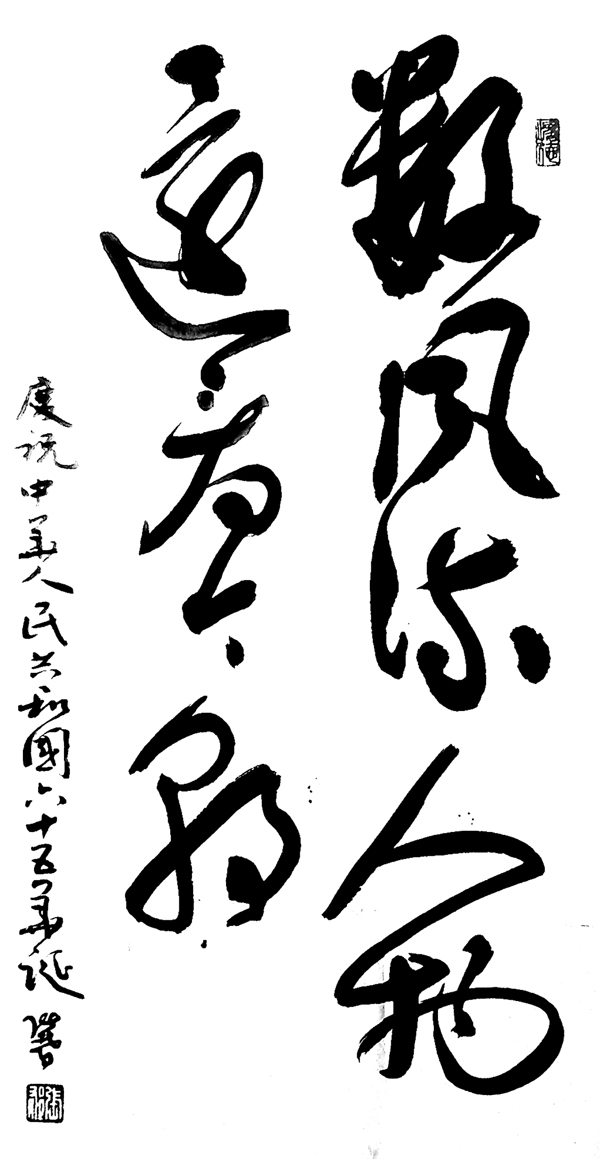 數風流人物
還看今朝
慶祝中華人民共和國六十五華誕